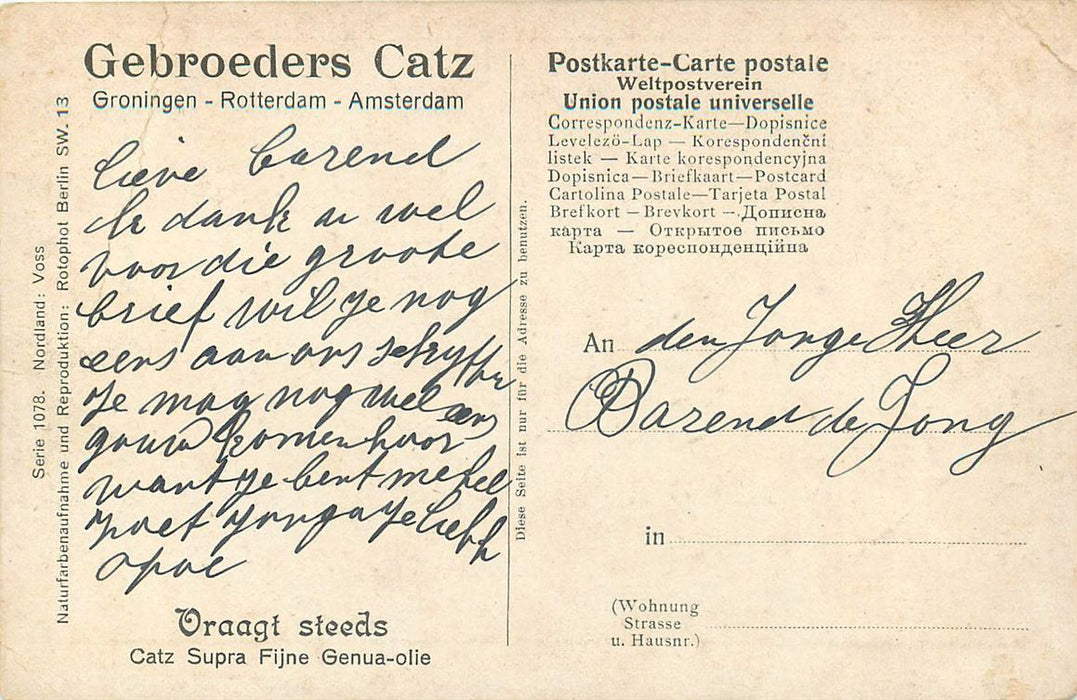 Gebroeders Catz
Groningen - Rotterdam - Amsterdam
Lieve Barend
Ik dank u wel
voor die groote
brief wil je nog
eens aan ons schryven
Je mag nog wel eens
gauw komen hoor
want je bent me heel
zoet jonga je liebh
opoe
Vraagt steeds
Catz Supra Fijne Genua-olie
Serie 1078. Nordland: Voss
Naturfarbenaufnahme und Reproduktion: Rotophot Berlin SW. 13
Diese Seite ist nur für die Adresse zu benutzen.
Postkarte-Carte postale
Weltpostverein
Union postale universelle
Correspondenz-Karte—Dopisnice
Levelezö-Lap — Korespondenční
listek — Karte korespondencyjna
Dopisnica—Briefkaart—Postcard
Cartolina Postale—Tarjeta Postal
Brefkort — Brevkort —.Дописна
карта — Открытое письмо
Карта кореспонденційна
An den Jonge Heer
Barend de Jong
in
(Wohnung
Strasse
u. Hausnr.)